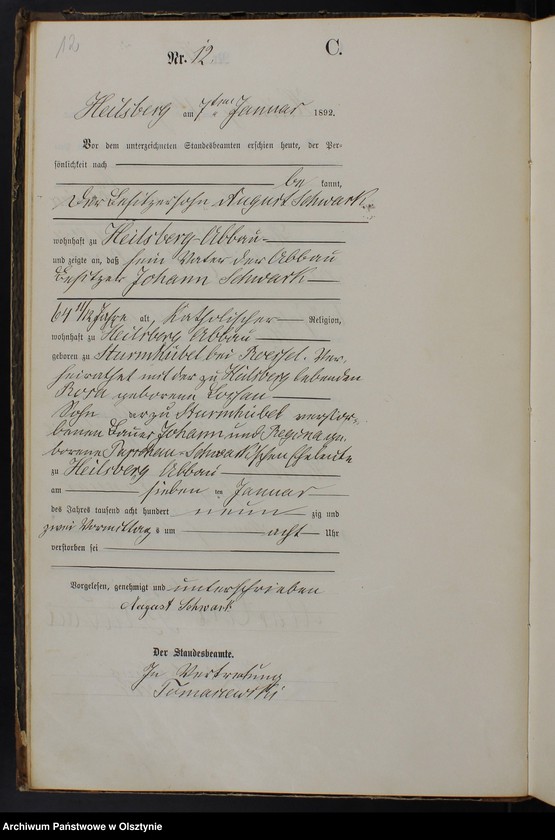 12
C.
Nr. 12
Heilsberg am 7ten Januar 1892.
Vor dem unterzeichneten Standesbeamten erschien heute, der Per-
sönlichkeit nach
be kannt,
der Besitzersohn August Schwark
wohnhaft zu Heilsberg Abbau
und zeigte an, daß sein Vater der Abbau
Besitzer Johann Schwark
64 11/12 Jahre alt, Katholischer Religion,
wohnhaft zu Heilsberg Abbau
geboren zu Sturmhübel bei Roessel. Ver-
heirathet mit der zu Heilsberg lebenden
Rosa geborene
Sohn der zu Sturmhübel verstor-
benen Bauer Johann und Regina ge-
borene Schwark'schen Eheleute
zu Heilsberg Abbau
am sieben ten Januar
des Jahres tausend acht hundert neun zig und
zwei Vormittag s um acht Uhr
verstorben sei
Vorgelesen, genehmigt und unterschrieben
August Schwark
Der Standesbeamte.
In Vertretung
Tomaszewski
Archiwum Państwowe w Olsztynie